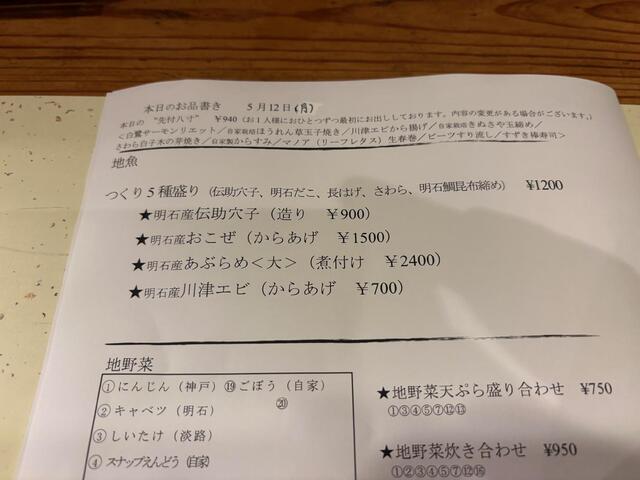 本日のお品書き 5月12日(月)
本日の "先付八寸" ¥940（お1人様におひとつずつ最初にお出ししております。内容の変更がある場合がございます。）
＜白鷺サーモンリエット／自家栽培ほうれん草玉子焼き／川津エビから揚げ／自家栽培きぬさや玉締め／
さわら白子木の芽焼き／自家製からすみ／マノア（リーフレタス）生春巻／ビーツすり流し／すずき棒寿司＞
地魚
つくり5種盛り（伝助穴子、明石だこ、長はげ、さわら、明石鯛昆布締め） ¥1200
★明石産伝助穴子（造り ¥900）
★明石産おこぜ（からあげ ¥1500）
★明石産あぶらめ＜大＞（煮付け ¥2400）
★明石産川津エビ（からあげ ¥700）
地野菜
①にんじん（神戸）⑲ごぼう（自家）
⑳
②キャベツ（明石）
③しいたけ（淡路）
④スナップえんどう（自家）
★地野菜天ぷら盛り合わせ ¥750
①③④⑤⑦⑫⑬
★地野菜炊き合わせ ¥950
①②③④⑤⑦⑫⑯